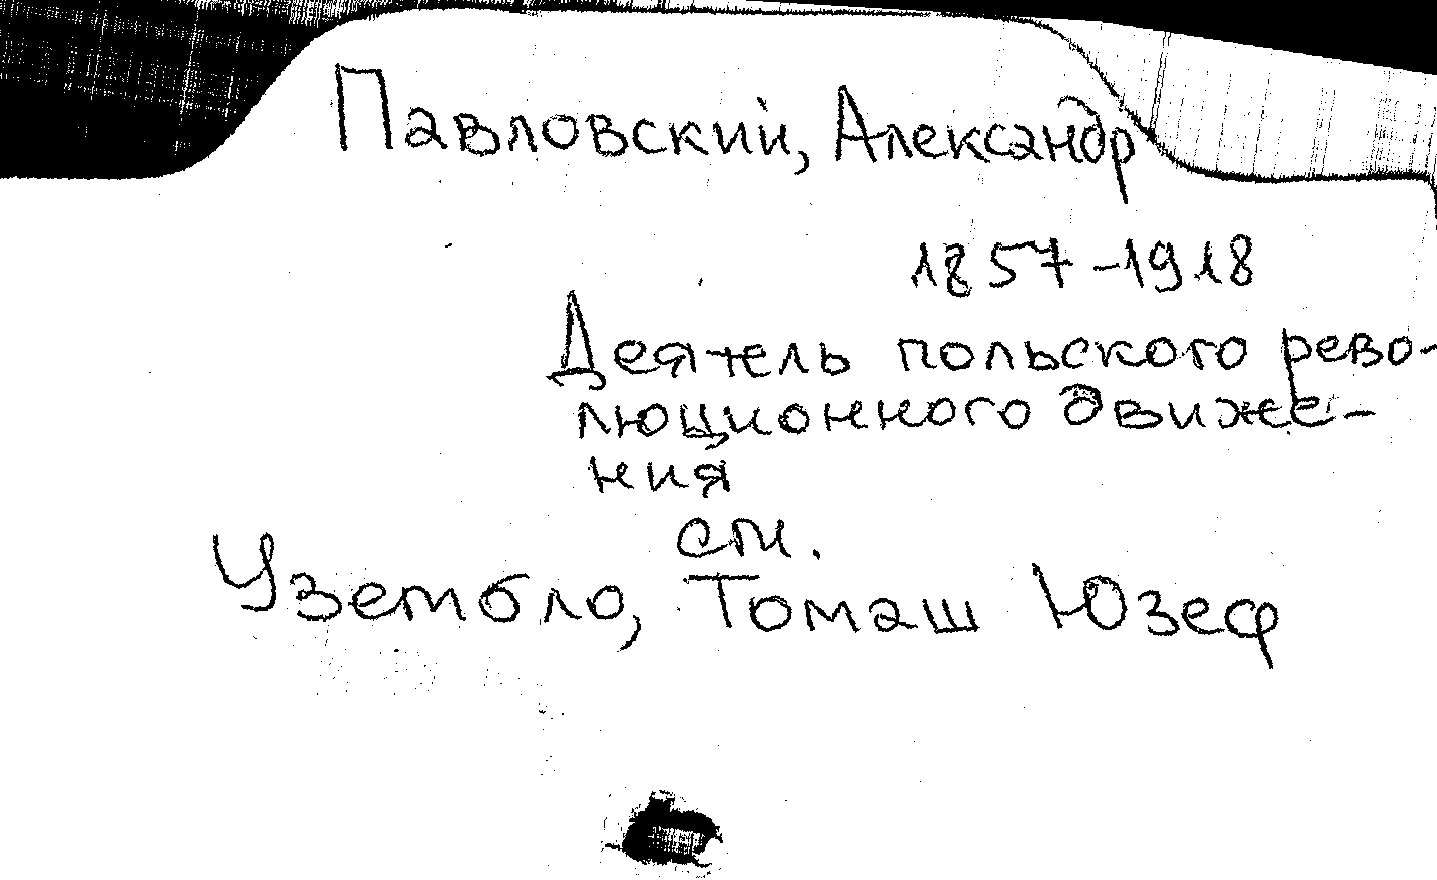 Павловский, Александр
1857-1918
Деятель польского рево-
люционного движе-
ния
см.
Узембло, Томаш Юзеф